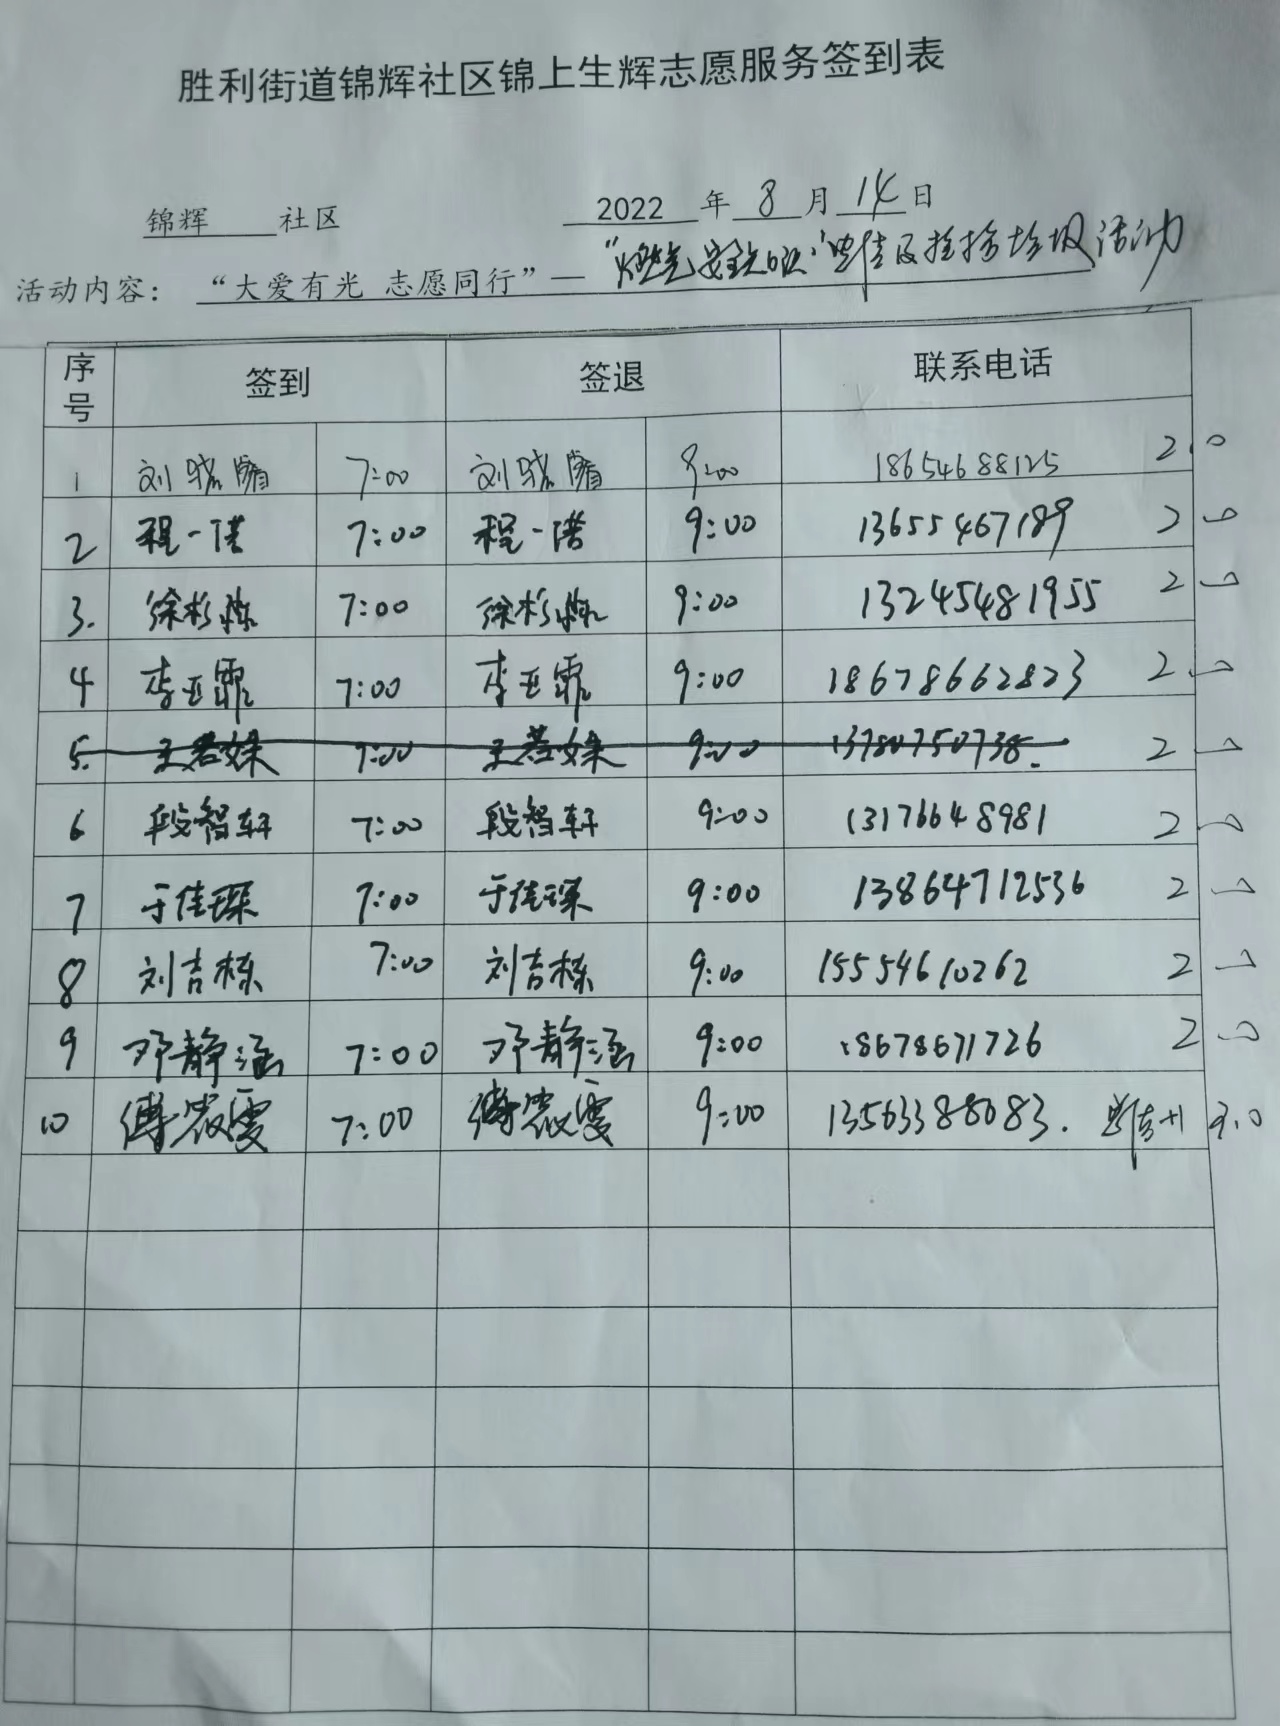 胜利街道锦辉社区锦上生辉志愿服务签到表
锦辉 社区 2022 年 8 月 14 日
活动内容： “大爱有光 志愿同行”— “燃气安全 及捡拾垃圾活动
序号 签到 签退 联系电话
1 刘 7:00 刘 9:00 18654688125 2.0
2 程一诺 7:00 程一诺 9:00 13655467189 2.0
3. 徐杉 7:00 徐杉 9:00 13245481955 2.0
4 李亚霏 7:00 李亚霏 9:00 18678662823 2.0
5. 王若妹 7:00 王若妹 9:00 13780750738. 2.0
6 段智轩 7:00 段智轩 9:00 13176648981 2.0
7 于佳琛 7:00 于佳琛 9:00 13864712536 2.0
8 刘吉栋 7:00 刘吉栋 9:00 15554610262 2.0
9 邓静涵 7:00 邓静涵 9:00 18678671726 2.0
10 傅宸雯 7:00 傅宸雯 9:00 13563388083. +1 3.0